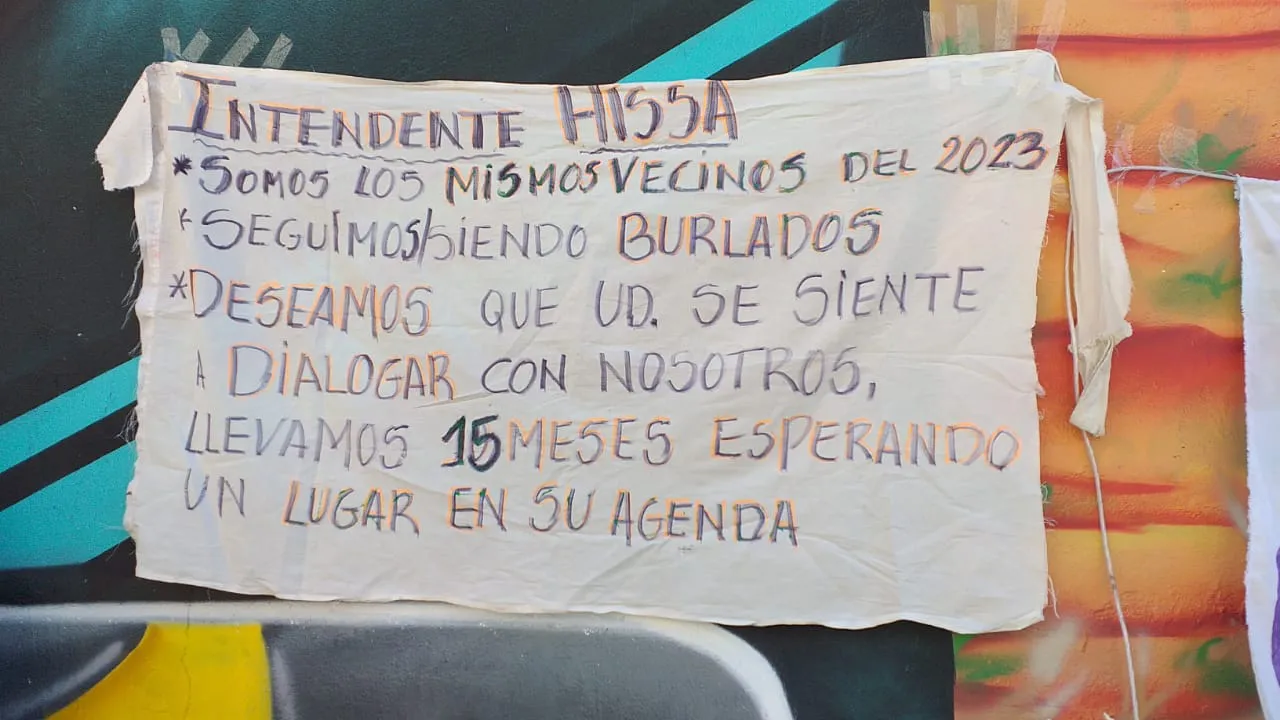 INTENDENTE HISSA
*SOMOS LOS MISMOS VECINOS DEL 2023
*SEGUIMOS/SIENDO BURLADOS
*DESEAMOS QUE UD. SE SIENTE
A DIALOGAR CON NOSOTROS,
LLEVAMOS 15 MESES ESPERANDO
UN LUGAR EN SU AGENDA